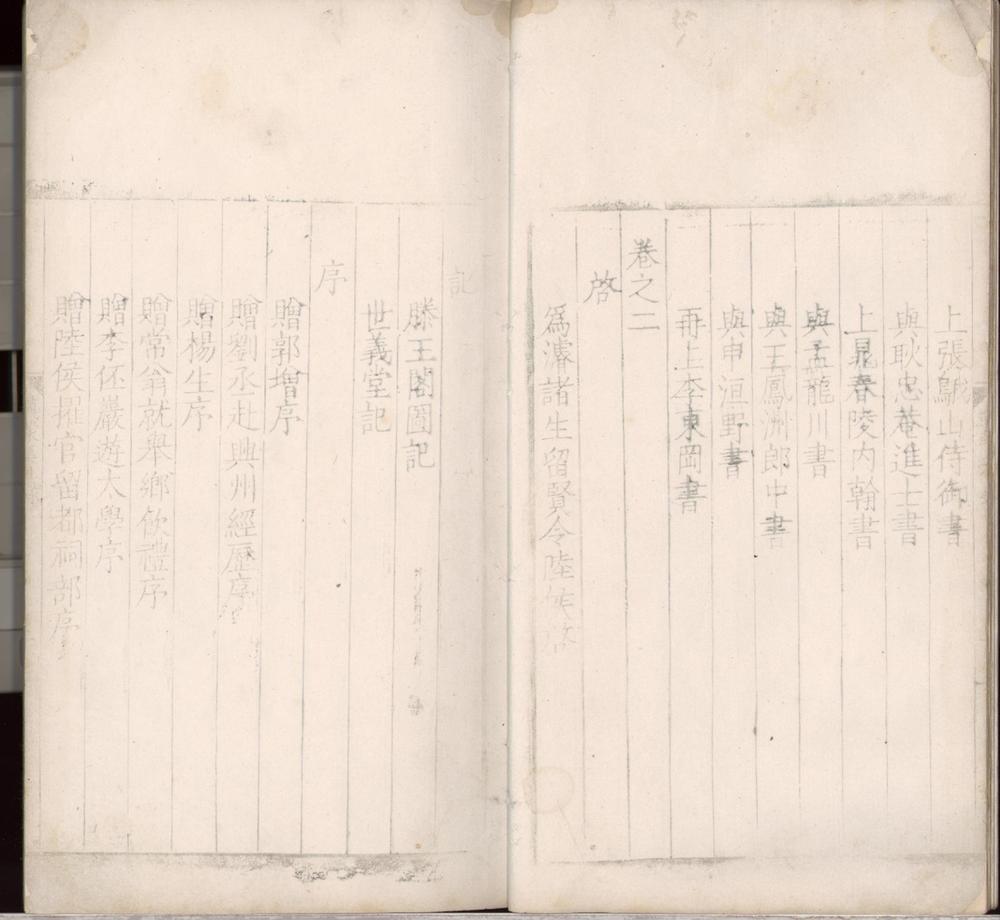 上張鷲山侍御書
與耿忠菴進士書
上晁春陵內翰書
與孟龍川書
與王鳳洲郎中書
與申洹野書
再上李東岡書
卷之二
啓
爲濬諸生留賢令陸侯啓
記
滕王閣圖記
世義堂記
序
贈郭增序
贈劉丞赴興州經歷序
贈楊生序
贈常翁就舉鄉飲禮序
贈李伾巖遊太學序
贈陸侯擢官留都祠部序